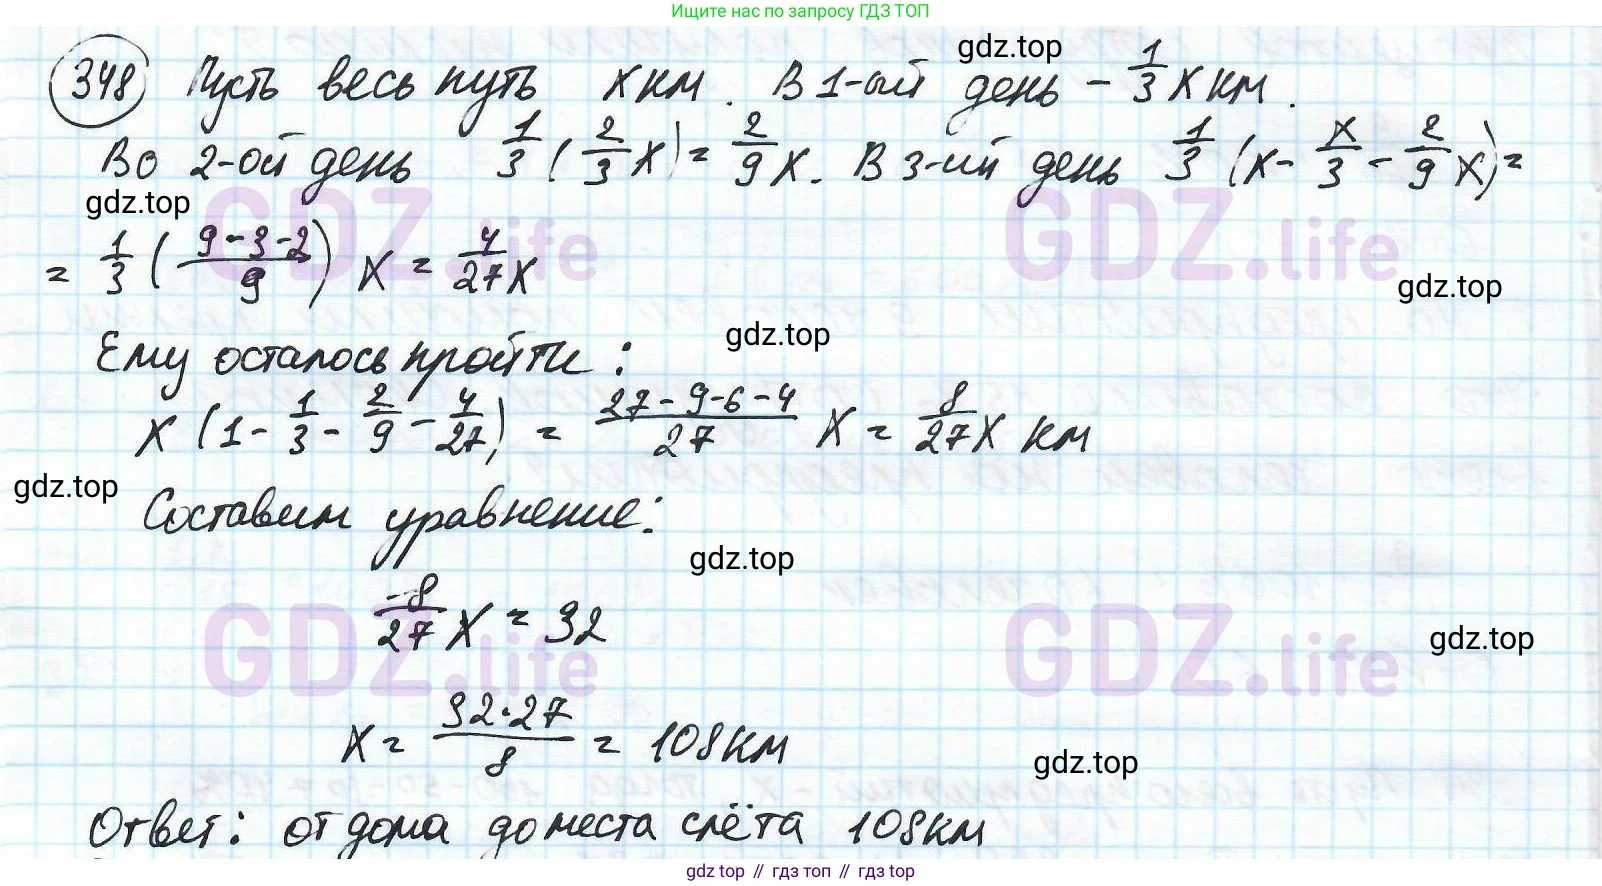 Ищите нас по запросу ГДЗ ТОП
gdz.top
348 Пусть весь путь x км. В 1-ый день - 1/3 x км.
Во 2-ой день 1/3 (2/3 x) = 2/9 x. В 3-ий день 1/3 (x - x/3 - 2/9 x) =
gdz.top
GDZ.life GDZ.life
= 1/3 ((9-3-2)/9) x = 4/27 x
gdz.top
gdz.top
Ему осталось пройти:
x (1 - 1/3 - 2/9 - 4/27) = (27-9-6-4)/27 x = 8/27 x км
gdz.top
Составим уравнение:
gdz.top
8/27 x = 32
GDZ.life GDZ.life
gdz.top
x = (32·27)/8 = 108 км
gdz.top
Ответ: от дома до места слёта 108 км
gdz top // гдз топ // гдз top